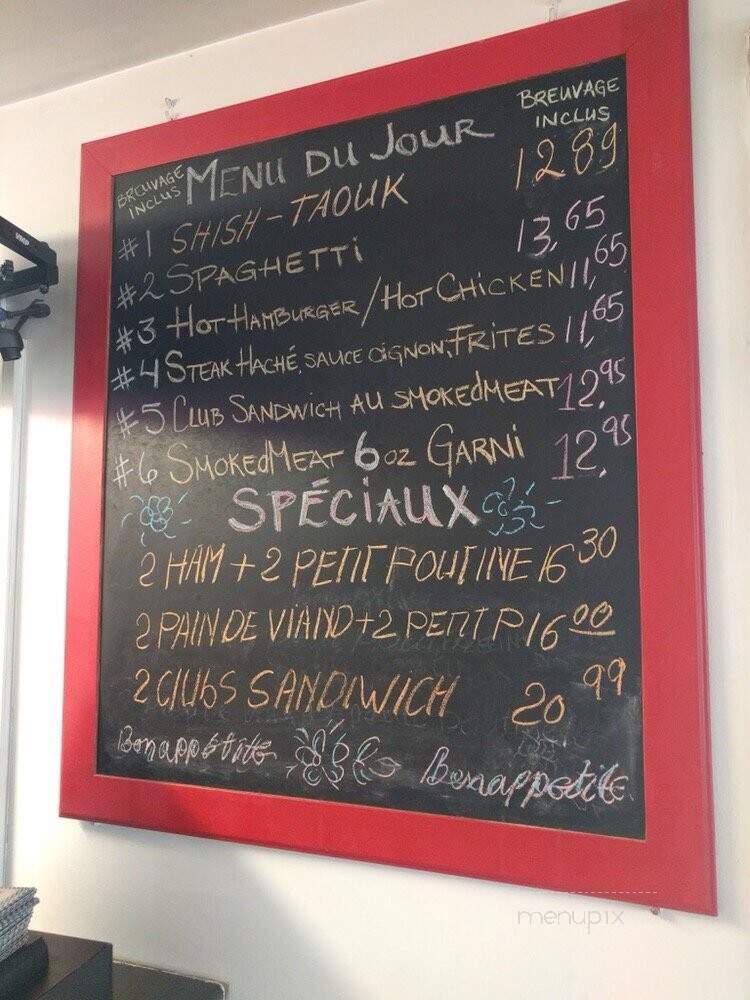 BREUVAGE INCLUS MENU DU JOUR BREUVAGE INCLUS
#1 SHISH-TAOUK 1289
#2 SPAGHETTI 13,65
#3 HOT HAMBURGER/HOT CHICKEN 11,65
#4 STEAK HACHÉ, SAUCE OIGNON, FRITES 11,65
#5 CLUB SANDWICH AU SMOKEDMEAT 12,95
#6 SMOKEDMEAT 6 oz GARNI 12,95
SPÉCIAUX
2 HAM + 2 PETIT POUTINE 16 30
2 PAIN DE VIAND + 2 PETIT P 16 00
2 CLUBS SANDIWICH 20 99
Bonappétite Bonappetite
VMP
menupix